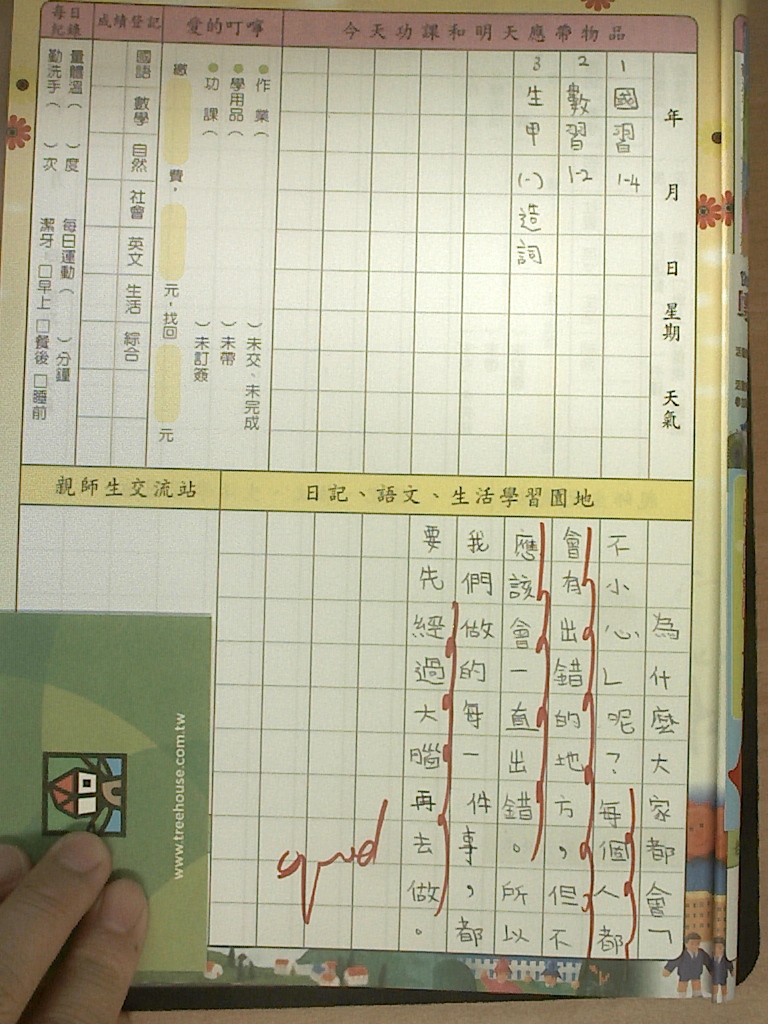 今天功課和明天應帶物品
年 月 日 星期 天氣
1 國習 1-4
2 數習 1-2
3 生甲 (一) 造詞
愛的叮嚀
●作業（ ）未交、未完成
●學用品（ ）未帶
●功課（ ）未訂簽
繳 費， 元，找回 元
成績登記
國語 數學 自然 社會 英文 生活 綜合
每日紀錄
量體溫（ ）度 每日運動（ ）分鐘
勤洗手（ ）次 潔牙，□早上 □餐後 □睡前
日記、語文、生活學習園地
為什麼大家都會「
不小心」呢？每個人都
會有出錯的地方，但不
應該會一直出錯。所以
我們做的每一件事，都
要先經過大腦再去做。
good
親師生交流站
www.treehouse.com.tw